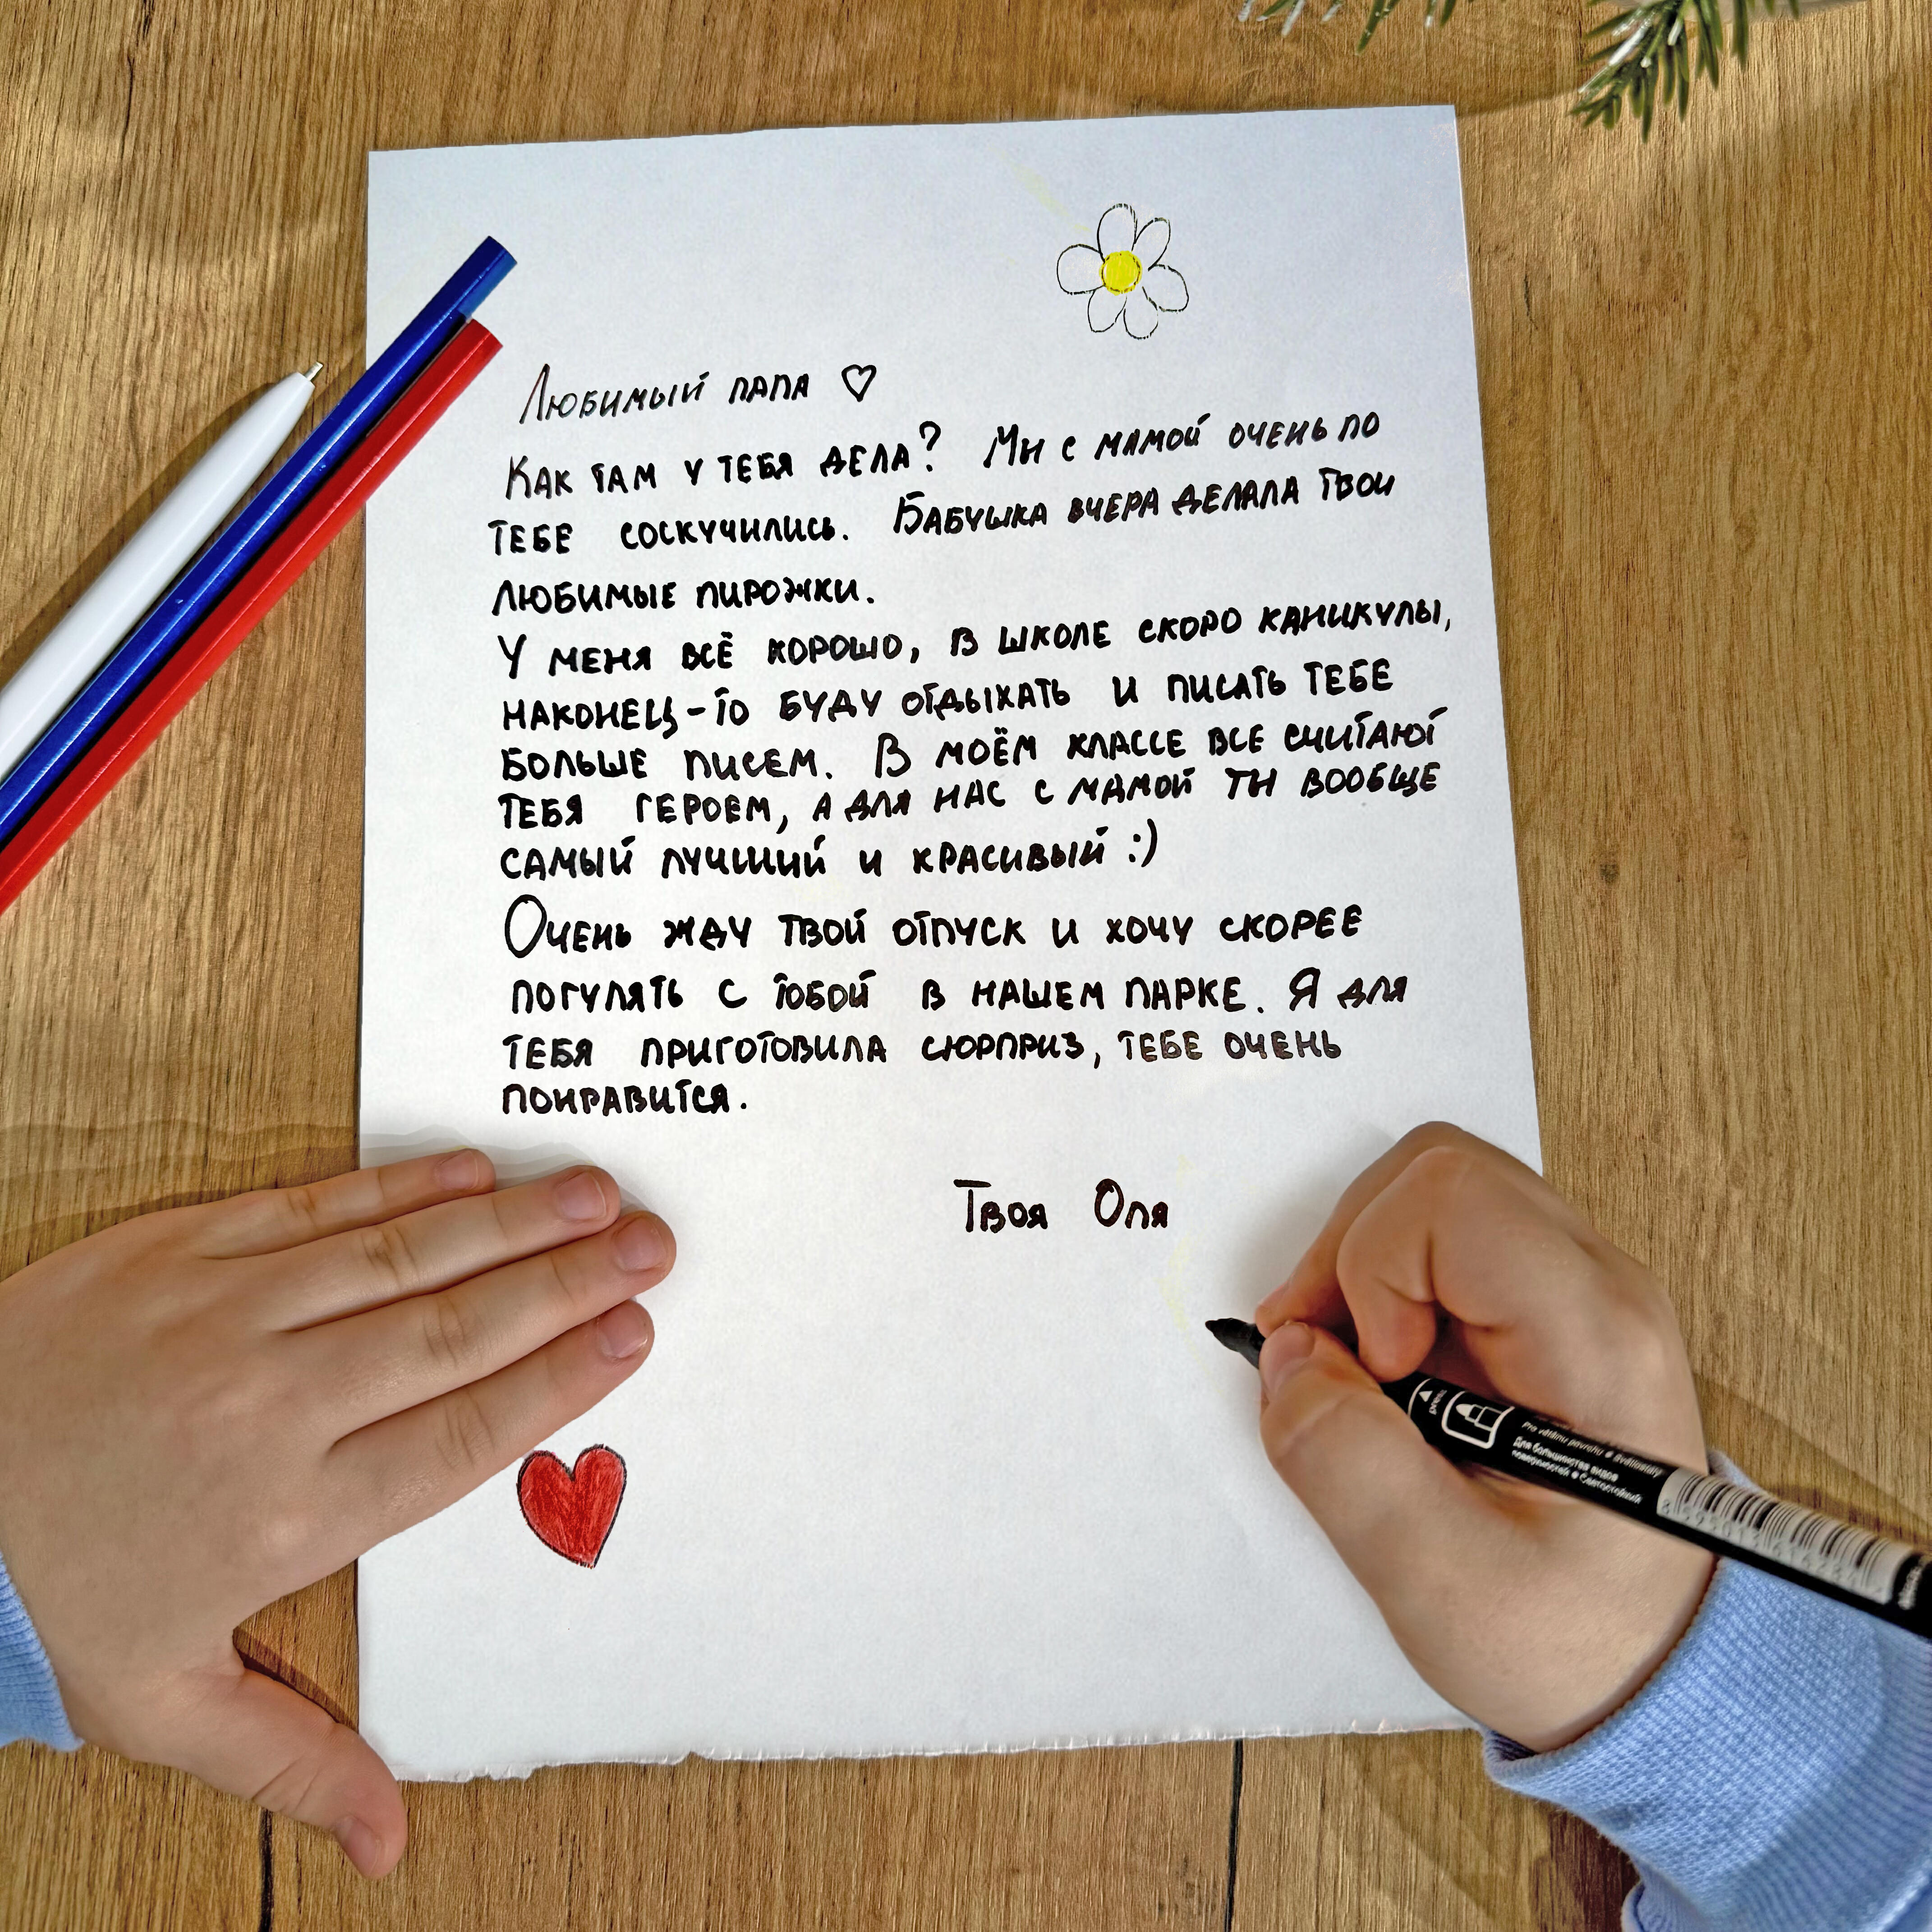 Любимый папа ♡
Как там у тебя дела? Мы с мамой очень по
тебе соскучились. Бабушка вчера делала твои
любимые пирожки.
У меня всё хорошо, в школе скоро каникулы,
наконец-то буду отдыхать и писать тебе
больше писем. В моём классе все считают
тебя героем, а для нас с мамой ты вообще
самый лучший и красивый :)
Очень жду твой отпуск и хочу скорее
погулять с тобой в нашем парке. Я для
тебя приготовила сюрприз, тебе очень
понравится.
Твоя Оля
Для большинства видов